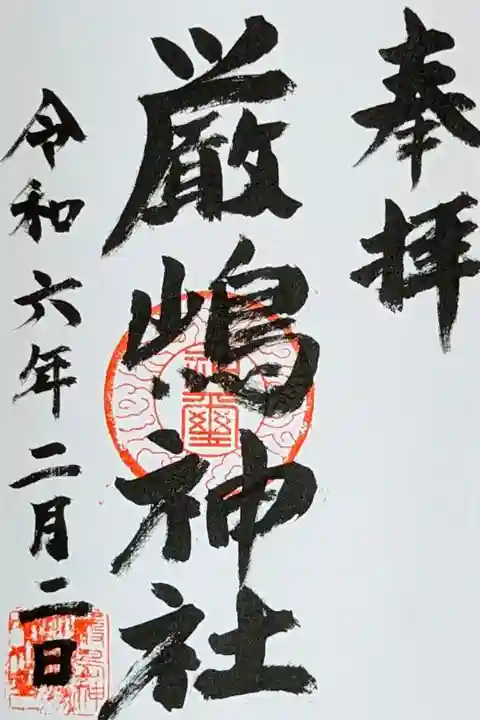 奉拝
厳嶋神社
令和六年二月二日